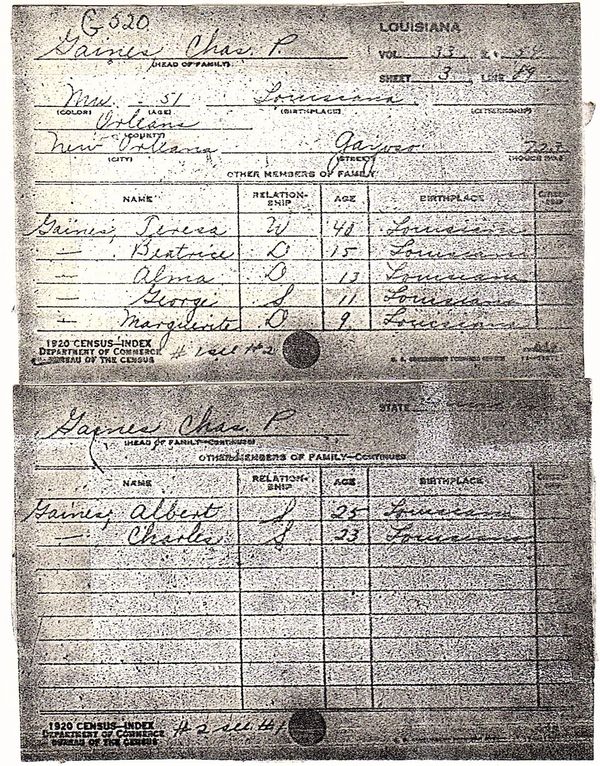 G 520
Gaines Chas. P.
(HEAD OF FAMILY)
LOUISIANA
VOL. 33 E.D.
SHEET 3 LINE 89
Mu 51 Louisiana
(COLOR) (AGE) (BIRTHPLACE) (CITIZENSHIP)
Orleans
(COUNTY)
New Orleans
(CITY) (STREET) (HOUSE NO.)
OTHER MEMBERS OF FAMILY
NAME RELATION-SHIP AGE BIRTHPLACE CITIZEN-SHIP
Gaines, Teresa W 40 Louisiana
— Beatrice D 15 Louisiana
— Alma D 13 Louisiana
— George S 11 Louisiana
— Marguerite D 9 Louisiana
1920 CENSUS—INDEX
DEPARTMENT OF COMMERCE
BUREAU OF THE CENSUS
#1 see #2
Gaines Chas. P
(HEAD OF FAMILY—CONTINUED)
STATE
OTHER MEMBERS OF FAMILY—CONTINUED
NAME RELATION-SHIP AGE BIRTHPLACE
Gaines, Albert S 25 Louisiana
— Charles S 23 Louisiana
1920 CENSUS—INDEX
DEPARTMENT OF COMMERCE
BUREAU OF THE CENSUS
#2 see #1